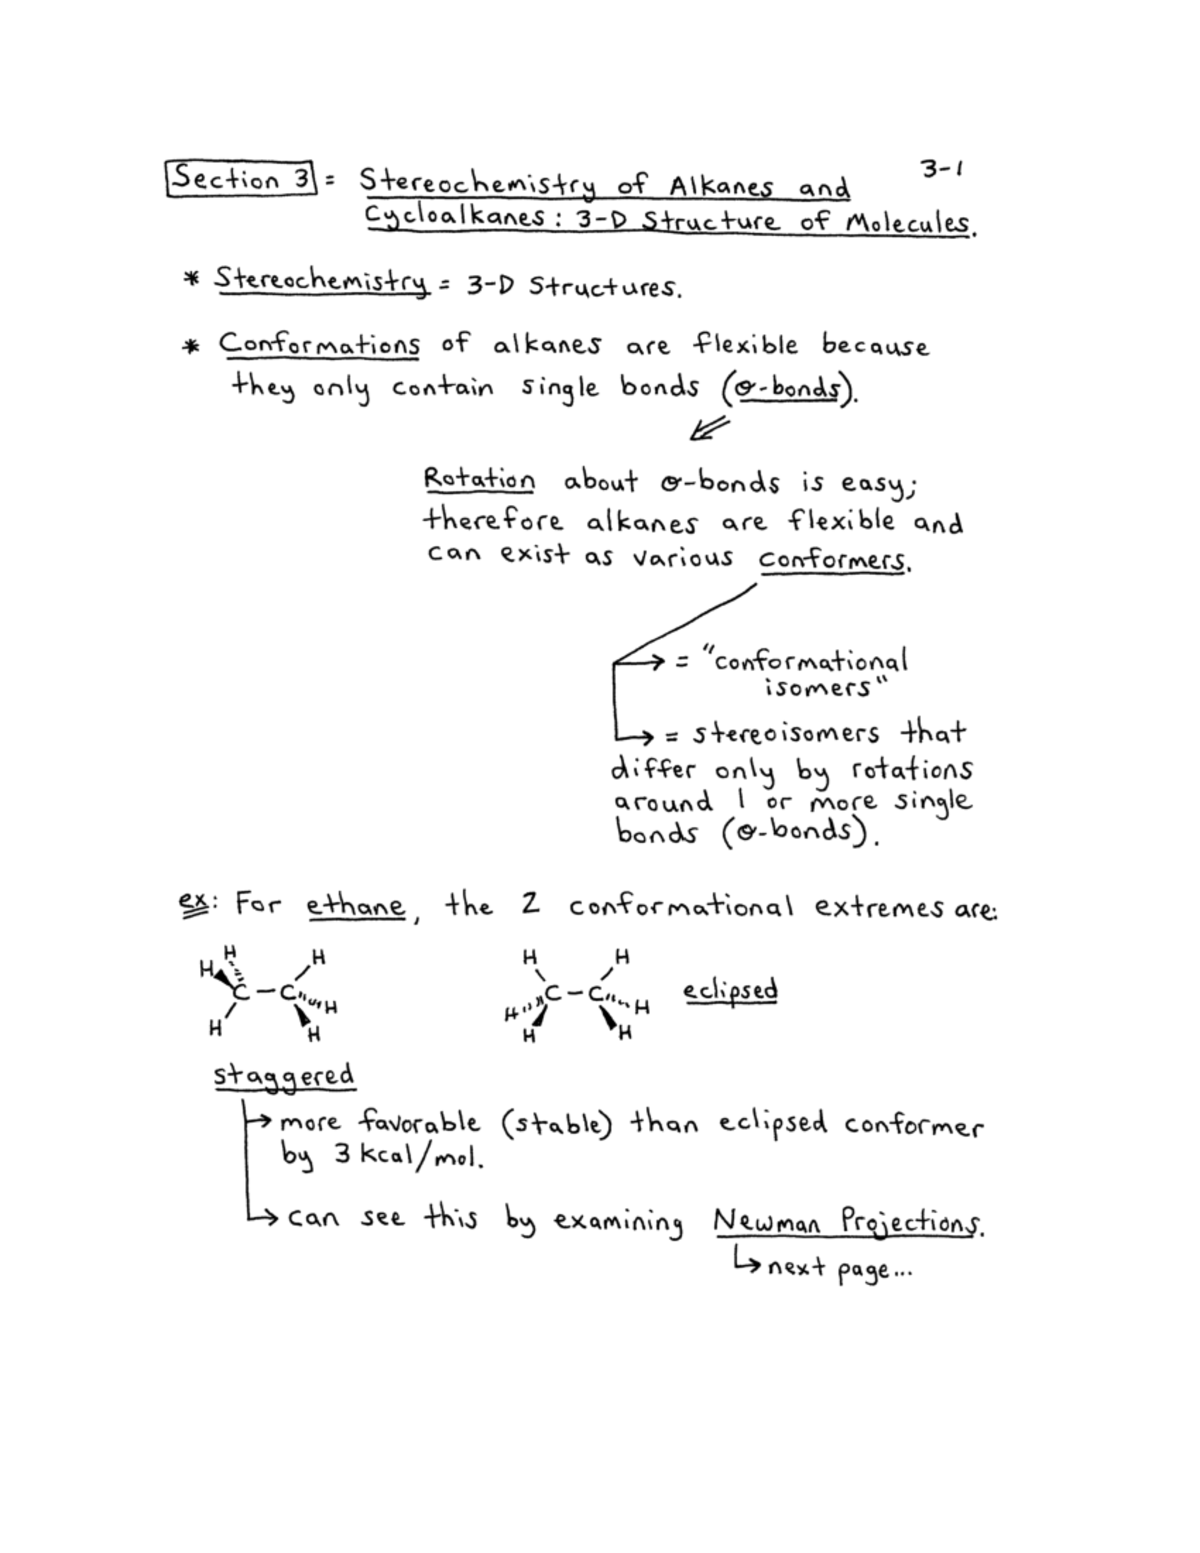 3-1
Section 3 = Stereochemistry of Alkanes and
Cycloalkanes: 3-D Structure of Molecules.
* Stereochemistry = 3-D Structures.
* Conformations of alkanes are flexible because
they only contain single bonds (σ-bonds).
Rotation about σ-bonds is easy;
therefore alkanes are flexible and
can exist as various conformers.
→ = "conformational
isomers"
→ = stereoisomers that
differ only by rotations
around 1 or more single
bonds (σ-bonds).
ex: For ethane, the 2 conformational extremes are:
H H H H H
H C-C H C-C eclipsed
H H H H H
H H H
staggered
→ more favorable (stable) than eclipsed conformer
by 3 kcal/mol.
→ can see this by examining Newman Projections.
↳ next page...